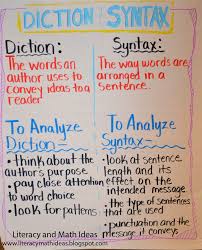 DICTION SYNTAX
Diction:
The words an
author uses to
convey ideas to a
reader
Syntax:
The way words are
arranged in a
sentence.
To Analyze
Diction~
• think about the
author's purpose
• pay close attention
to word choice
• look for patterns
To Analyze
Syntax~
• look at sentence
length and its
effect on the
intended message.
• the type of sentences
that are used
• punctuation and the
message it conveys
Literacy and Math Ideas
www.literacymathideas.blogspot.com